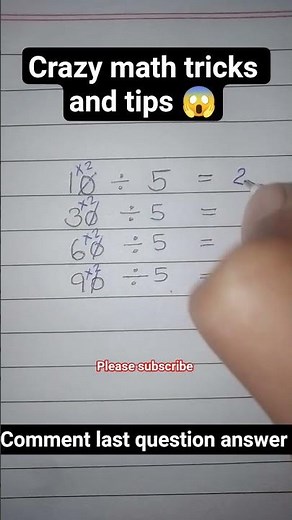 Crazy math tricks
and tips 😱
10 ×2 ÷ 5 = 2
30 ×2 ÷ 5 =
60 ×2 ÷ 5 =
90 ×2 ÷ 5 =
Please subscribe
Comment last question answer